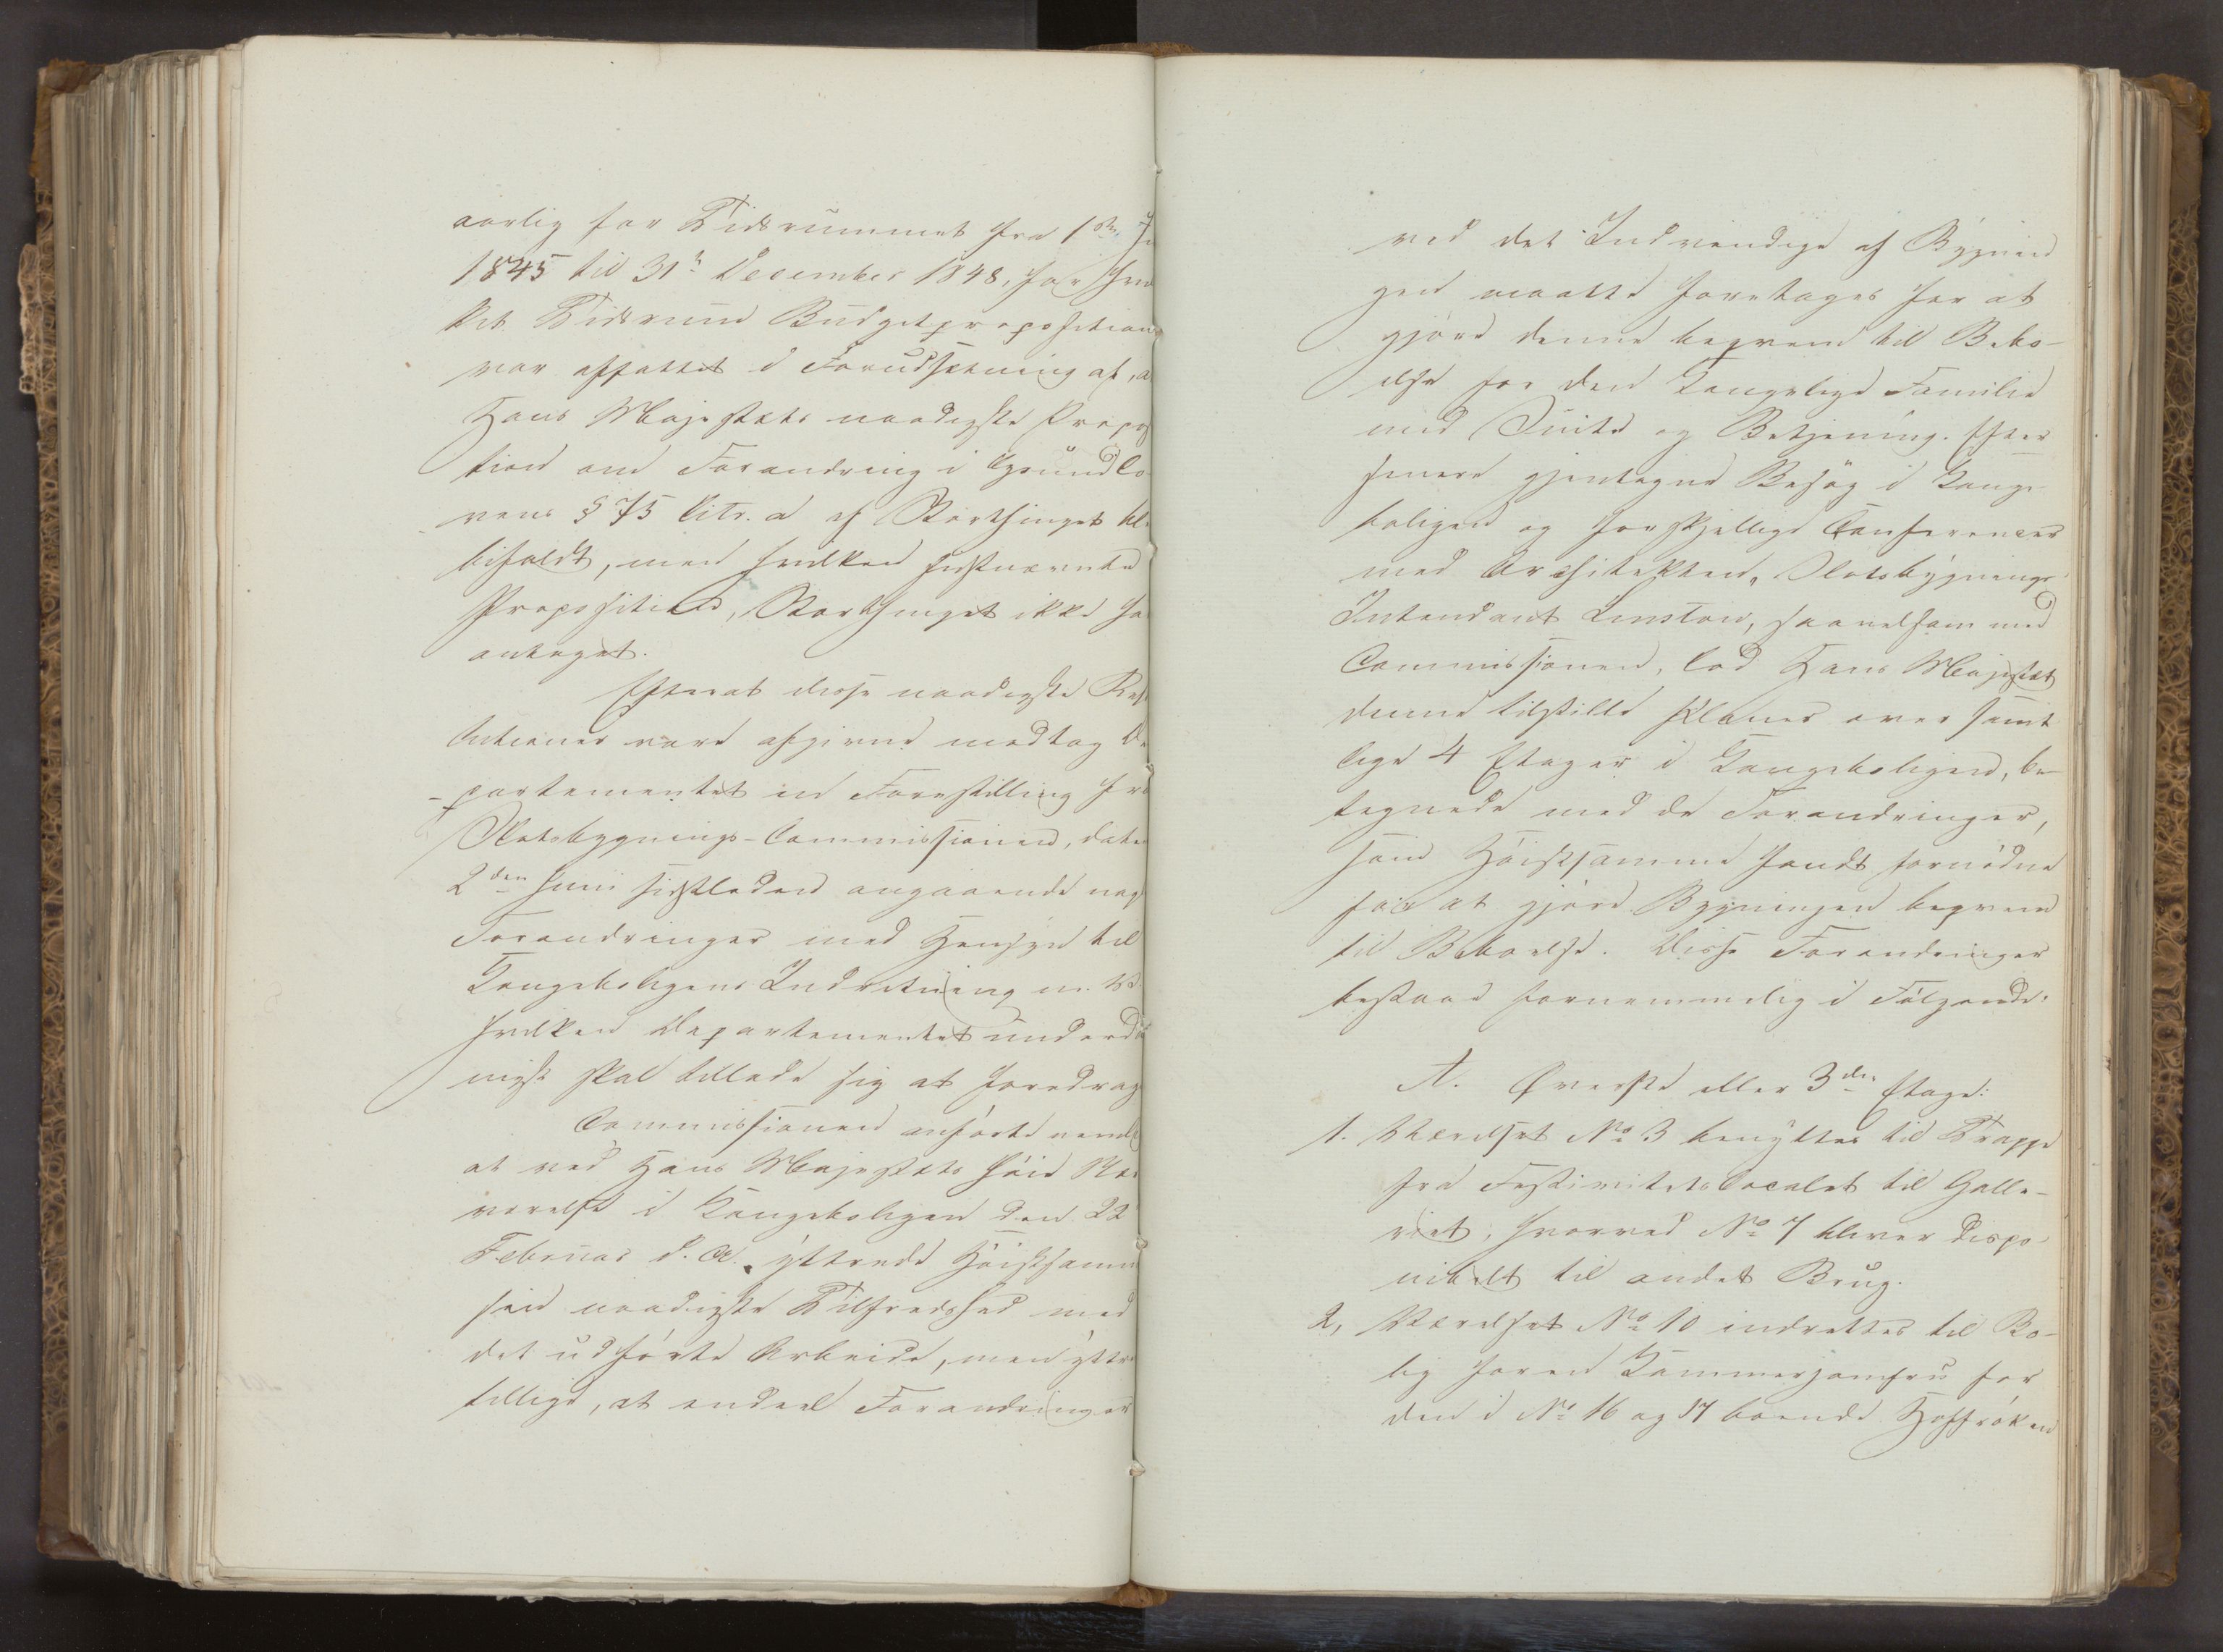 aarlig for Tidsrummet fra 1ste J
1845 til 31te December 1848, for hvil
ket Tidsrum Budgetproposition
var affattet i Forudsætning af, a
Hans Majestæts naadigste Propos
tion om Forandring i Grundlo
vens § 75 Litr. a af Storthinget bl
bifaldt, men hvilken sidstnævnte
Proposition, Storthinget ikke ha
antaget.
Efterat disse naadigste Res
lutioner vare afgivne modtog De
partementet en Forestilling fra
Slotsbygnings-Commissionen, date
2den Juni sidstleden angaaende nog
Forandringer med Hensyn til
Kongeboligens Indretning m. V.
hvilken Departementet underdа
nigst skal tillade sig at foredrag
Commissionen anførte neml
at ved Hans Majestæts høie Næ
værelse i Kongeboligen den 22
Februar d. A. yttrede Høistsamm
sin naadigste Tilfredshed med
det udførte Arbeide, men yttre
tillige, at endeel Forandringer
ved det Indvendige af Bygnin
gen maatte foretages for at
gjøre denne beqvem til Bebo-
else for den Kongelige Familie
med Suite og Betjening. Efter
senere gjentagne Besøg i Konge
boligen og forskjellige Conferencer
med Architekten, Slotsbygnings
Intendant Linstow, saavelsom med
Commissionen, lod Hans Majestæt
denne tilstille Planer over samt
lige 4 Etager i Kongeboligen, be
tegnede med de Forandringer,
som Høistsamme fandt fornødne
for at gjøre Bygningen beqvem
til Beboelse. Disse Forandringer
bestaae fornemmelig i Følgende:
A. Øverste eller 3die Etage:
1. Værelset No 3 benyttes til Trappe
fra Festivitetslocalet til Galle-
riet, hvorved No 7 bliver dispo
nibelt til andet Brug.
2, Værelset No 10 indrettes til Bo-
lig for en Kammerjomfru for
den i No 16 og 17 boende Hoffrøken